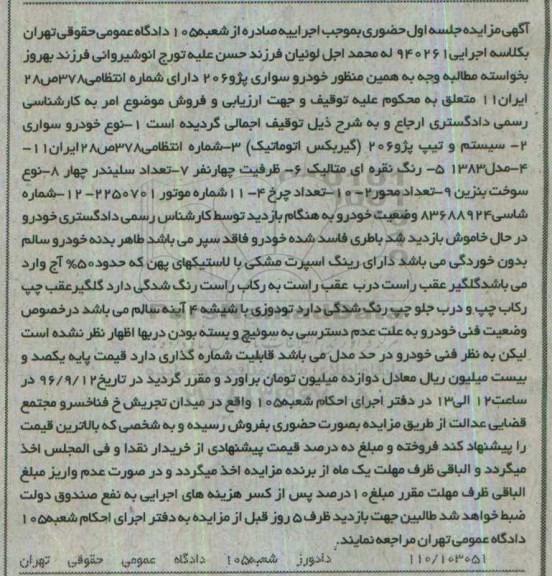 آگهی مزایده جلسه اول حضوری بموجب اجراییه صادره از شعبه ۱۰۵ دادگاه عمومی حقوقی تهران
بکلاسه اجرایی ۹۴۰۲۶۱ له محمد اجل لوئیان فرزند حسن علیه تورج انوشیروانی فرزند بهروز
بخواسته مطالبه وجه به همین منظور خودرو سواری پژو ۲۰۶ دارای شماره انتظامی ۳۷۸ص۲۸
ایران ۱۱ متعلق به محکوم علیه توقیف و جهت ارزیابی و فروش موضوع امر به کارشناسی
رسمی دادگستری ارجاع و به شرح ذیل توقیف اجمالی گردیده است ۱-نوع خودرو سواری
۲- سیستم و تیپ پژو ۲۰۶ (گیربکس اتوماتیک) ۳-شماره انتظامی ۳۷۸ص۲۸ ایران ۱۱-
۴-مدل ۱۳۸۳ ۵- رنگ نقره ای متالیک ۶- ظرفیت چهارنفر ۷-تعداد سلیندر چهار ۸-نوع
سوخت بنزین ۹-تعداد محور ۲- ۱۰-تعداد چرخ ۴- ۱۱ شماره موتور ۲۲۵۰۷۰۱- ۱۲-شماره
شاسی ۸۳۶۸۸۹۲۴ وضعیت خودرو به هنگام بازدید توسط کارشناس رسمی دادگستری خودرو
در حال خاموش بازدید شد باطری فاسد شده خودرو فاقد سپر می باشد ظاهر بدنه خودرو سالم
بدون خوردگی می باشد دارای رینگ اسپرت مشکی با لاستیکهای پهن که حدود ۵۰% آج وارد
می باشد گلگیر عقب راست درب عقب راست به رکاب راست رنگ شدگی دارد گلگیر عقب چپ
رکاب چپ و درب جلو چپ رنگ شدگی دارد تودوزی با شیشه ۴ آینه سالم می باشد درخصوص
وضعیت فنی خودرو به علت عدم دسترسی به سوئیچ و بسته بودن دربها اظهار نظر نشده است
لیکن به نظر فنی خودرو در حد مدل می باشد قابلیت شماره گذاری دارد قیمت پایه یکصد و
بیست میلیون ریال معادل دوازده میلیون تومان براورد و مقرر گردید در تاریخ ۹۶/۹/۱۲ در
ساعت ۱۲ الی ۱۳ در دفتر اجرای احکام شعبه ۱۰۵ واقع در میدان تجریش خ فناخسرو مجتمع
قضایی عدالت از طریق مزایده بصورت حضوری بفروش رسیده و به شخصی که بالاترین قیمت
را پیشنهاد کند فروخته و مبلغ ده درصد قیمت پیشنهادی از خریدار نقدا و فی المجلس اخذ
میگردد و الباقی ظرف مهلت یک ماه از برنده مزایده اخذ میگردد و در صورت عدم واریز مبلغ
الباقی ظرف مهلت مقرر مبلغ ۱۰درصد پس از کسر هزینه های اجرایی به نفع صندوق دولت
ضبط خواهد شد طالبین جهت بازدید ظرف ۵ روز قبل از مزایده به دفتر اجرای احکام شعبه ۱۰۵
دادگاه عمومی تهران مراجعه نمایند.
۱۱۰/۱۰۳۰۵۱ دادورز شعبه ۱۰۵ دادگاه عمومی حقوقی تهران